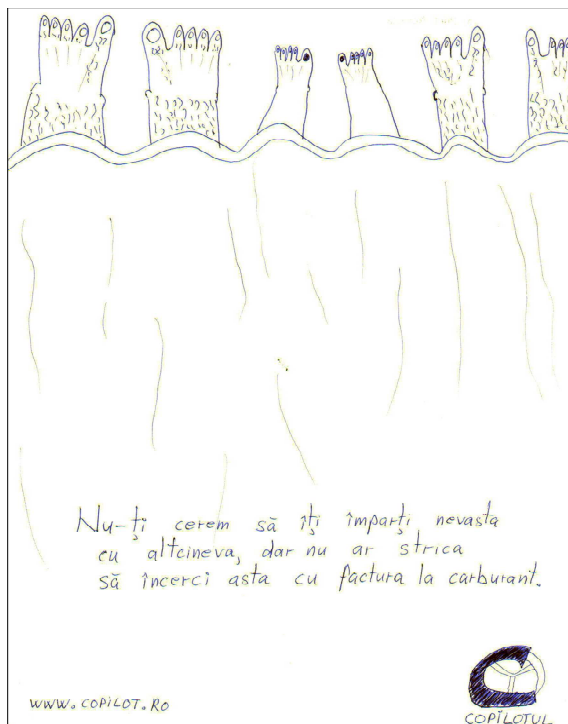 Nu-ți cerem să îți împarți nevasta
cu altcineva, dar nu ar strica
să încerci asta cu factura la carburant.
WWW.COPILOT.RO
COPILOTUL